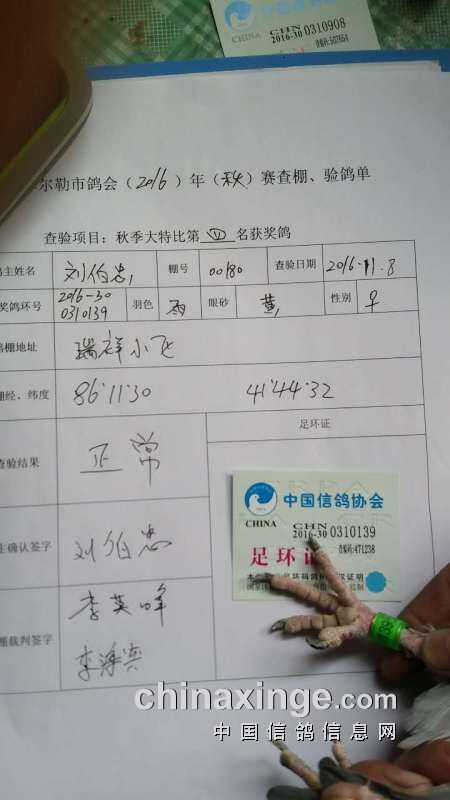 CHINA
CHN
2016-30 0310908
尔勒市鸽会（2016）年（秋）赛查棚、验鸽单
查验项目：秋季大特比第 四 名获奖鸽
主姓名 刘伯忠 棚号 00180 查验日期 2016.11.3
奖鸽环号 2016-30 0310139 羽色 雨 眼砂 黄 性别 ♀
棚地址 瑞祥小
棚经、纬度 86°11'30 41°44'32
足环证
查验结果 正常
中国信鸽协会
CHINA
CHN
2016-30 0310139
查编码:471238
足环证
确认签字 刘伯忠
棚裁判签字 李英峰
李海
chinaxinge.com
中国信鸽信息网